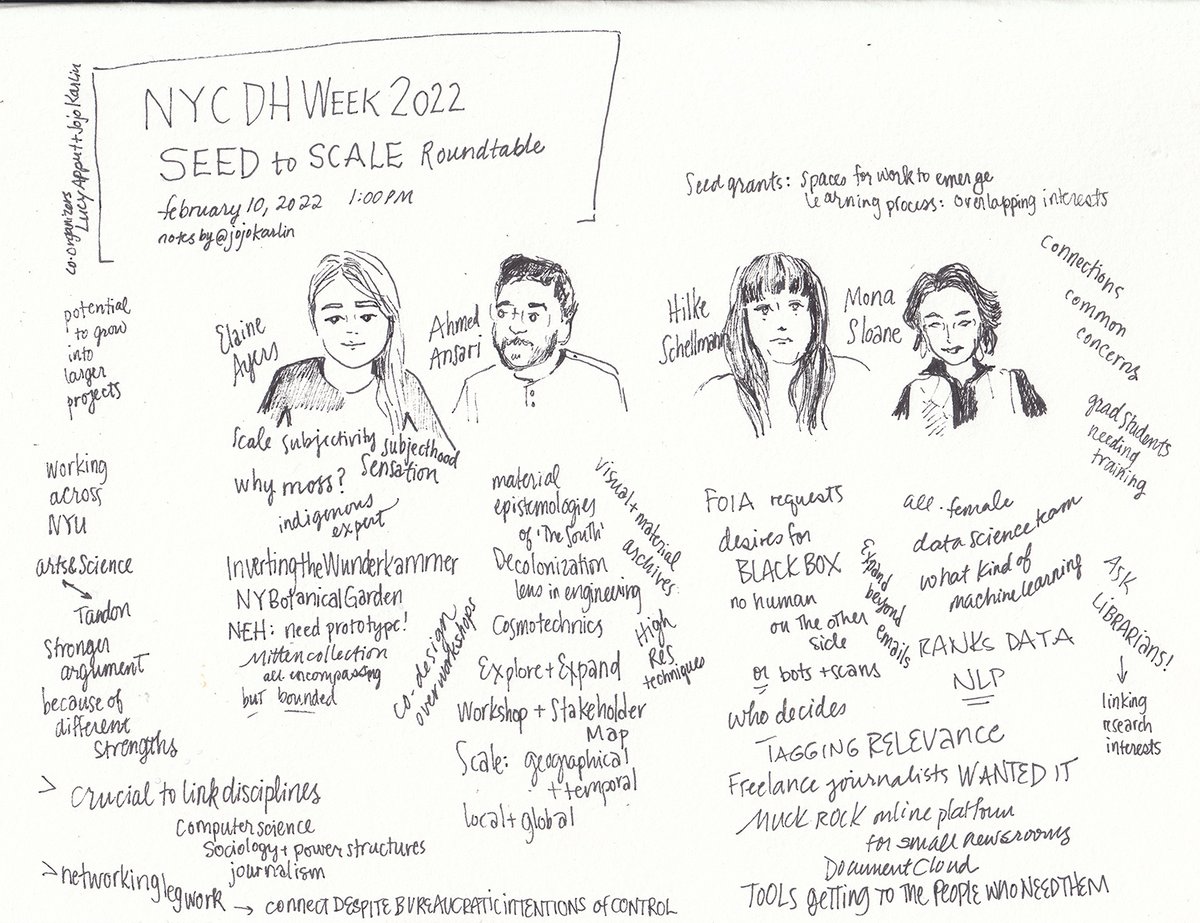 co-organizers
Lucy Appert + Jojo Karlin
NYCDH WEEK 2022
SEED to SCALE Roundtable
february 10, 2022 1:00PM
notes by @jojokarlin
Seed grants: spaces for work to emerge
learning process: overlapping interests
potential
to grow
into
larger
projects
working
across
NYU
arts&Science
Tandon
Stronger
argument
because of
different
strengths
Elaine
Ayers
Scale subjectivity subjecthood
Sensation
why moss?
indigenous
expert
Inverting the Wunderkammer
NY Botanical Garden
NEH: need prototype!
Mitten collection
all encompassing
but bounded
co-design
over workshops
Ahmed
Ansari
material
epistemologies
of 'The South'
Decolonization
lens in engineering
Cosmotechnics
Explore + Expand
Workshop + Stakeholder
Map
Scale: geographical
+ temporal
local + global
visual + material
archives
High
Res
techniques
Hilke
Schellmann
FOIA requests
desires for
BLACK BOX
no human
on the other
side
or bots + scans
who decides
Expand
beyond
emails
Mona
Sloane
all-female
data science team
what kind of
machine learning
RANKS DATA
NLP
TAGGING RELEVANCE
Freelance journalists WANTED IT
MUCK ROCK online platform
for small newsrooms
DocumentCloud
TOOLS getting to THE PEOPLE WHO NEED THEM
connections
common
concerns
grad students
needing
training
ASK
LIBRARIANS!
linking
research
interests
> crucial to link disciplines
computer science
sociology + power structures
journalism
> networking legwork → connect DESPITE BUREAUCRATIC INTENTIONS of CONTROL